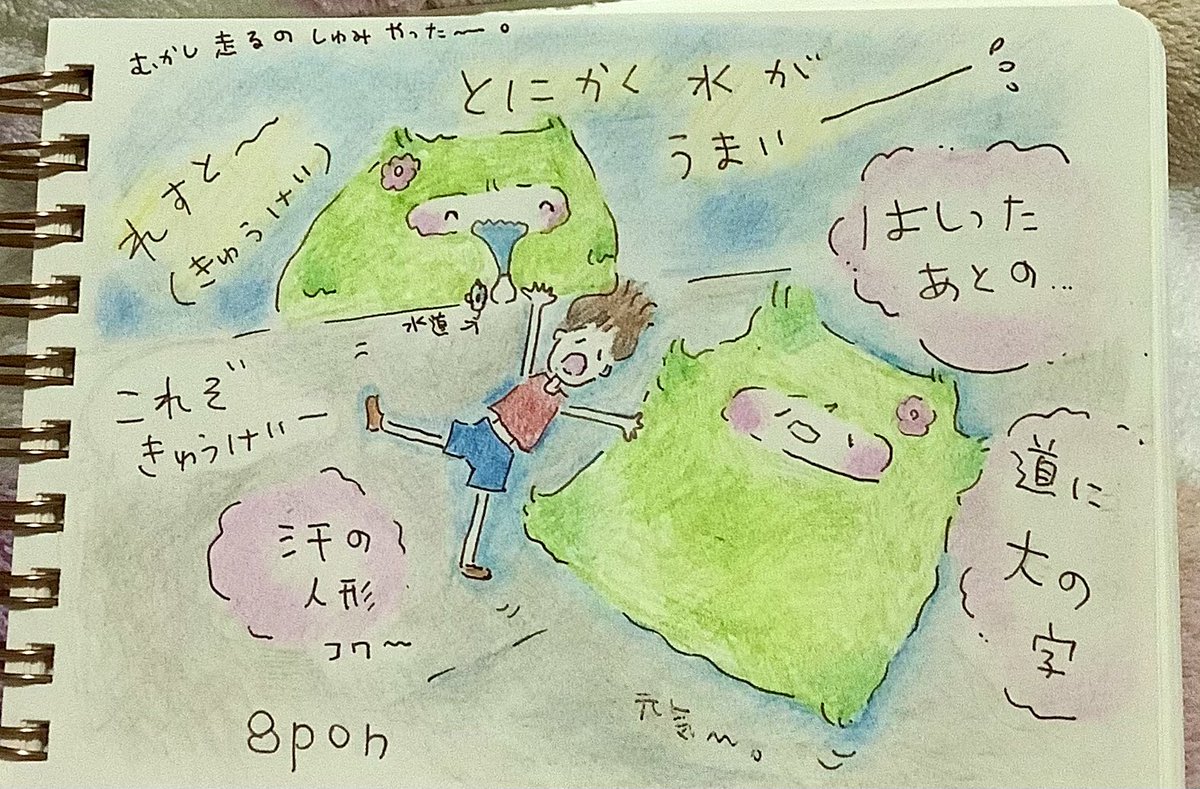 むかし 走るの しゅみ やった〜。
とにかく 水 が
うまい
れすと〜
(きゅうけい)
はしった
あとの…
水道→
これぞ
きゅうけいー
道に
大の
字
汗の
人形
コワ〜
元気〜。
8pon